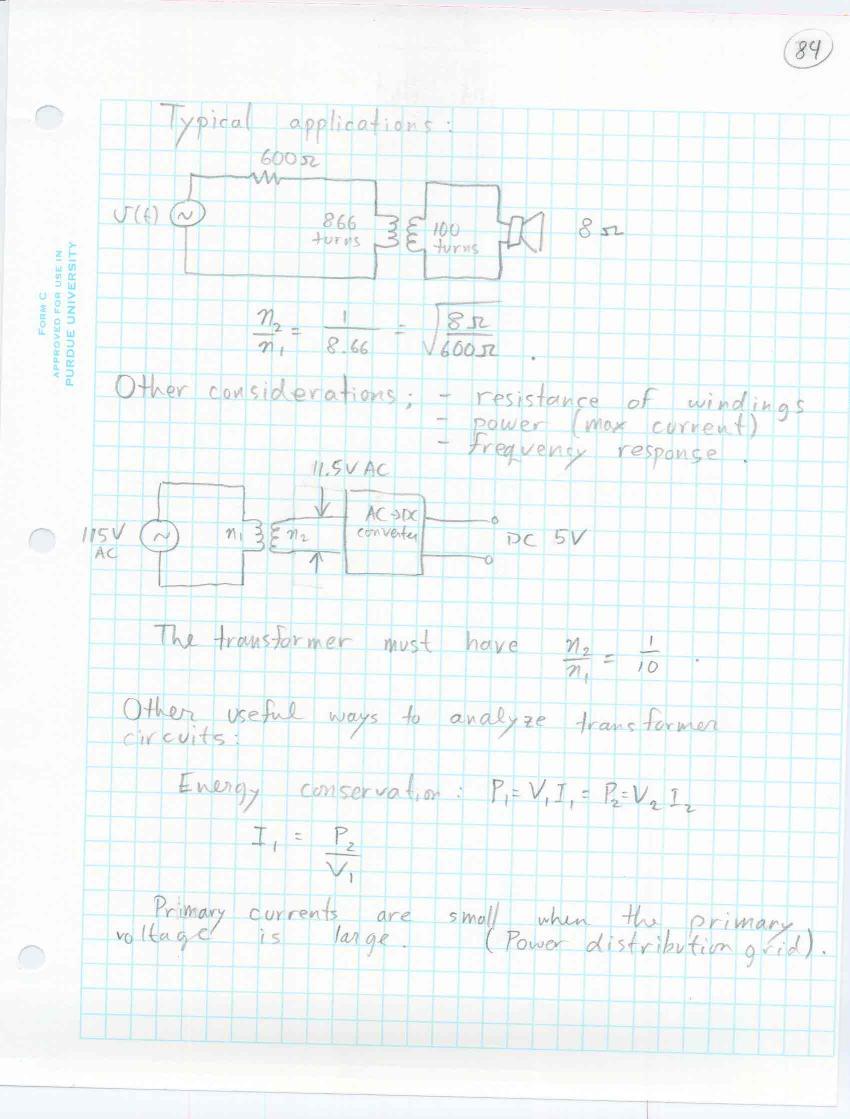 84
FORM C
APPROVED FOR USE IN
PURDUE UNIVERSITY
Typical applications:
600Ω
V(t) ~ 866 turns 100 turns 8Ω
n₂/n₁ = 1/8.66 = √(8Ω/600Ω) .
Other considerations; - resistance of windings
- power (max current)
- frequency response.
11.5V AC
115V AC ~ n₁ n₂ AC→DC converter DC 5V
The transformer must have n₂/n₁ = 1/10 .
Other useful ways to analyze transformer
circuits:
Energy conservation: P₁=V₁I₁=P₂=V₂I₂
I₁ = P₂/V₁
Primary currents are small when the primary
voltage is large. (Power distribution grid).